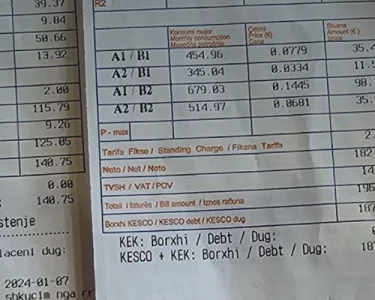 39.37
9.84
50.66
13.92
2.00
115.79
9.26
125.05
140.75
0.00
140.75
stenje
laceni dug:
2024-01-07
shkycim nga rr
R2
Konsumi mujor
Monthly consumption
Mesečna potrošnja
Çmimi
Price (€)
Cena
Shuma
Amount (€)
Iznos
A1 / B1 454.96 0.0779 35.4
A2 / B1 345.04 0.0334 11.5
A1 / B2 679.03 0.1445 98.
A2 / B2 514.97 0.0681 35.
P - max
Tarifa Fikse / Standing Charge / Fiksna Tarifa 2.
Neto / Net / Neto 182
TVSH / VAT / PDV 14
Totali i faturës / Bill amount / Iznos računa 196
Borxhi KESCO / KESCO debt / KESCO dug 187
KEK: Borxhi / Debt / Dug:
KESCO + KEK: Borxhi / Debt / Dug: 18